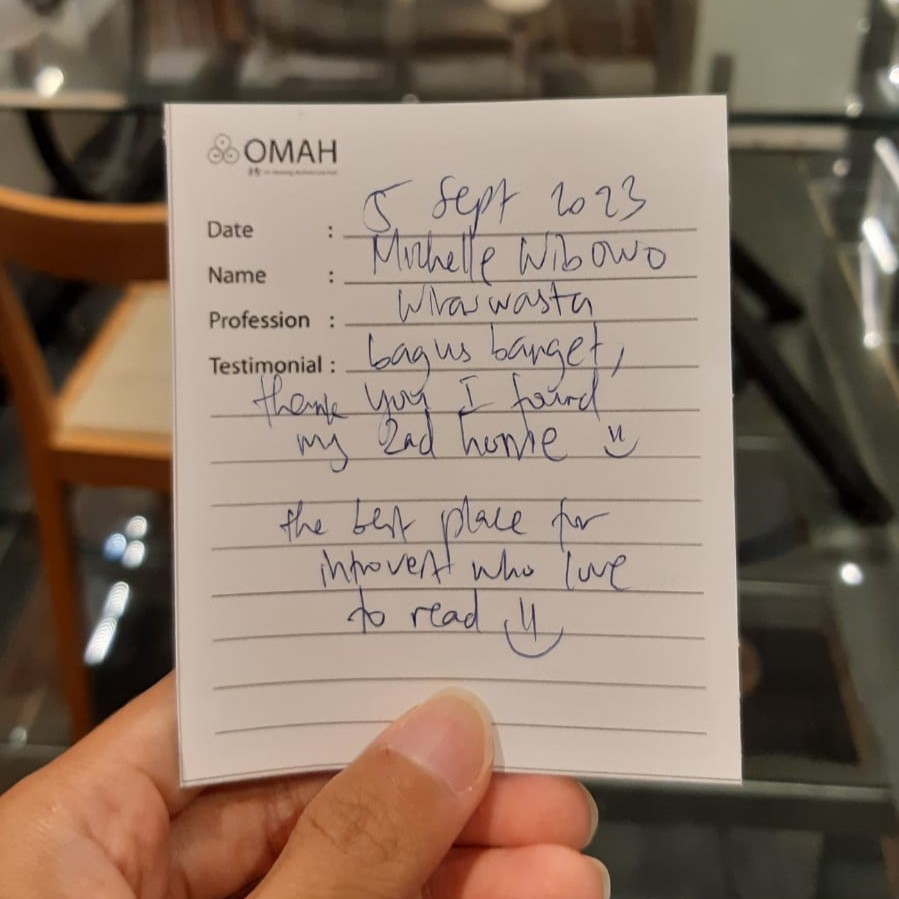 OMAH
Date : 5 Sept 2023
Name : Michelle Wibowo
Profession : Wiraswasta
Testimonial : bagus banget,
thank you I found
my 2nd home
the best place for
introvert who love
to read